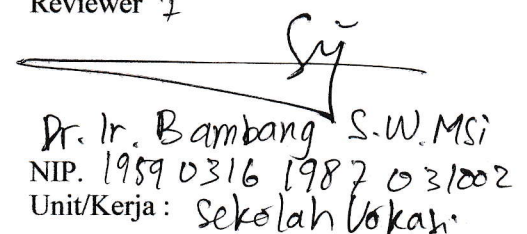 Reviewer 1
Dr. Ir. Bambang S.W. MSi
NIP. 1959 0316 1987 031002
Unit/Kerja : Sekolah Vokasi.